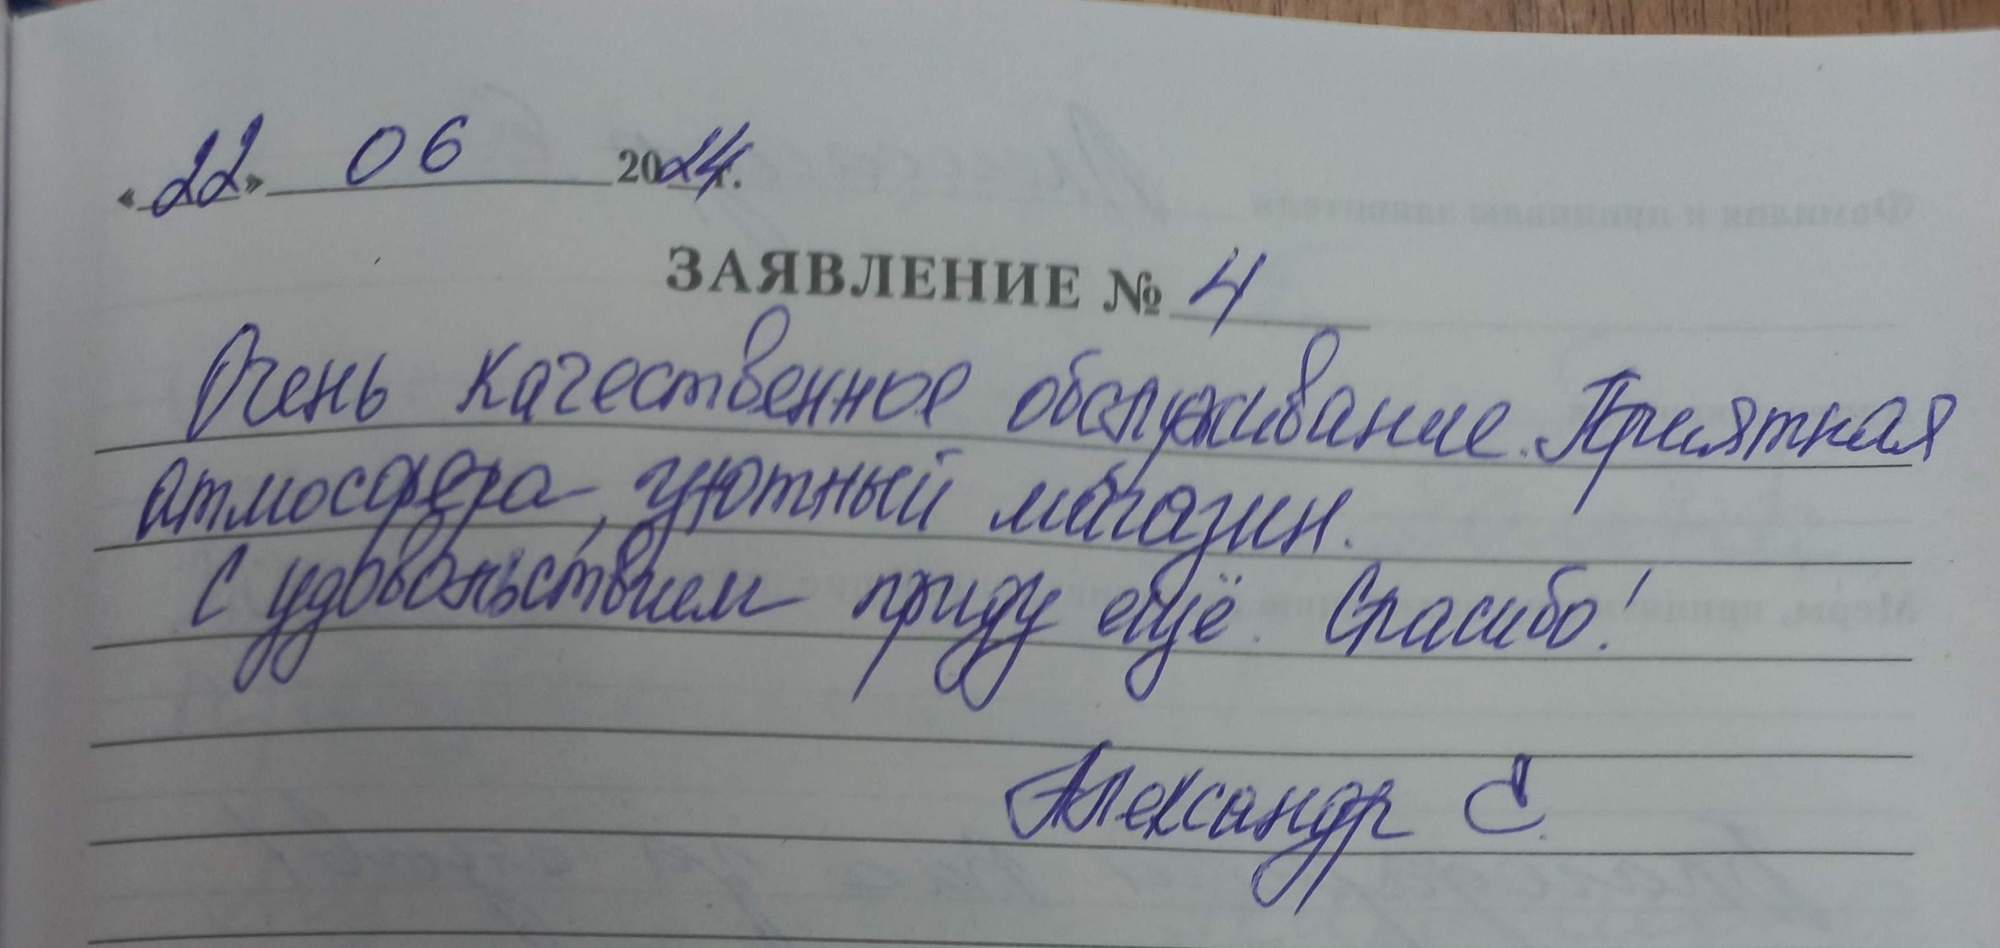 «22» 06 2024г.
ЗАЯВЛЕНИЕ № 4
Очень качественное обслуживание. Приятная
атмосфера, уютный магазин.
С удовольствием приду ещё. Спасибо!
Александр С.